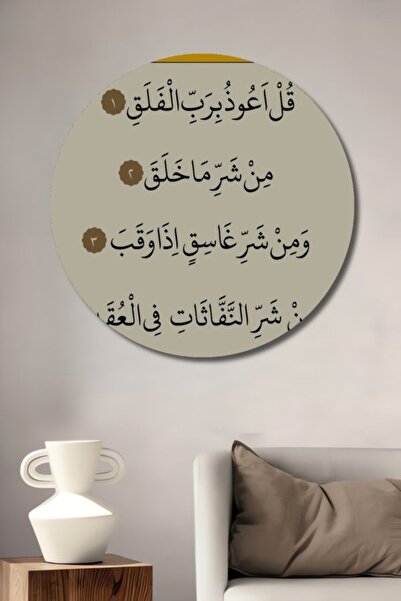 قُلْ اَعُوذُ بِرَبِّ الْفَلَقِ ١
مِنْ شَرِّ مَا خَلَقَ ٢
وَمِنْ شَرِّ غَاسِقٍ اِذَا وَقَبَ ٣
نْ شَرِّ النَّفَّاثَاتِ فِي الْعُقَ